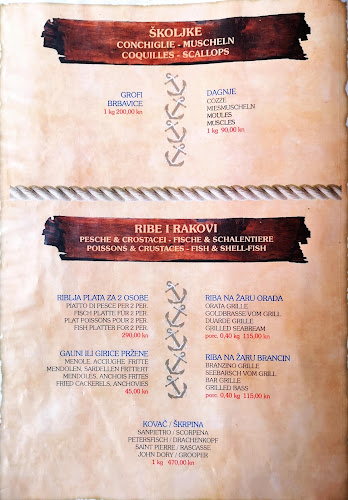 ŠKOLJKE
CONCHIGLIE - MUSCHELN
COQUILLES - SCALLOPS
GROFI
BRBAVICE
1 kg 200,00 kn
DAGNJE
COZZE
MIESMUSCHELN
MOULES
MUSCLES
1 kg 90,00 kn
RIBE I RAKOVI
PESCHE & CROSTACEI - FISCHE & SCHALENTIERE
POISSONS & CRUSTACES - FISH & SHELL-FISH
RIBLJA PLATA ZA 2 OSOBE
PIATTO DI PESCE PER 2 PER.
FISCH PLATTE FUR 2 PER.
PLAT POISSONS POUR 2 PER.
FISH PLATTER FOR 2 PER.
290,00 kn
GAUNI ILI GIRICE PRŽENE
MENOLE, ACCIUGHE, FRITTE
MENDOLEN, SARDELLEN FRTTIERT
MENDOLES, ANCHOIS FRITES
FRIED CACKERELS, ANCHOVIES
45,00 kn
RIBA NA ŽARU ORADA
ORATA GRILLE
GOLDBRASSE VOM GRILL
DUARDE GRILLE
GRILLED SEABREAM
porc. 0,40 kg 115,00 kn
RIBA NA ŽARU BRANCIN
BRANZINO GRILLE
SEEBARSCH VOM GRILL
BAR GRILLE
GRILLED BASS
porc. 0,40 kg 115,00 kn
KOVAČ / ŠKRPINA
SANPIETRO / SCORPENA
PETERSFISCH / DRACHENKOPF
SAINT PIERRE / RASCASSE
JOHN DORY / GROOPER
1 kg 470,00 kn